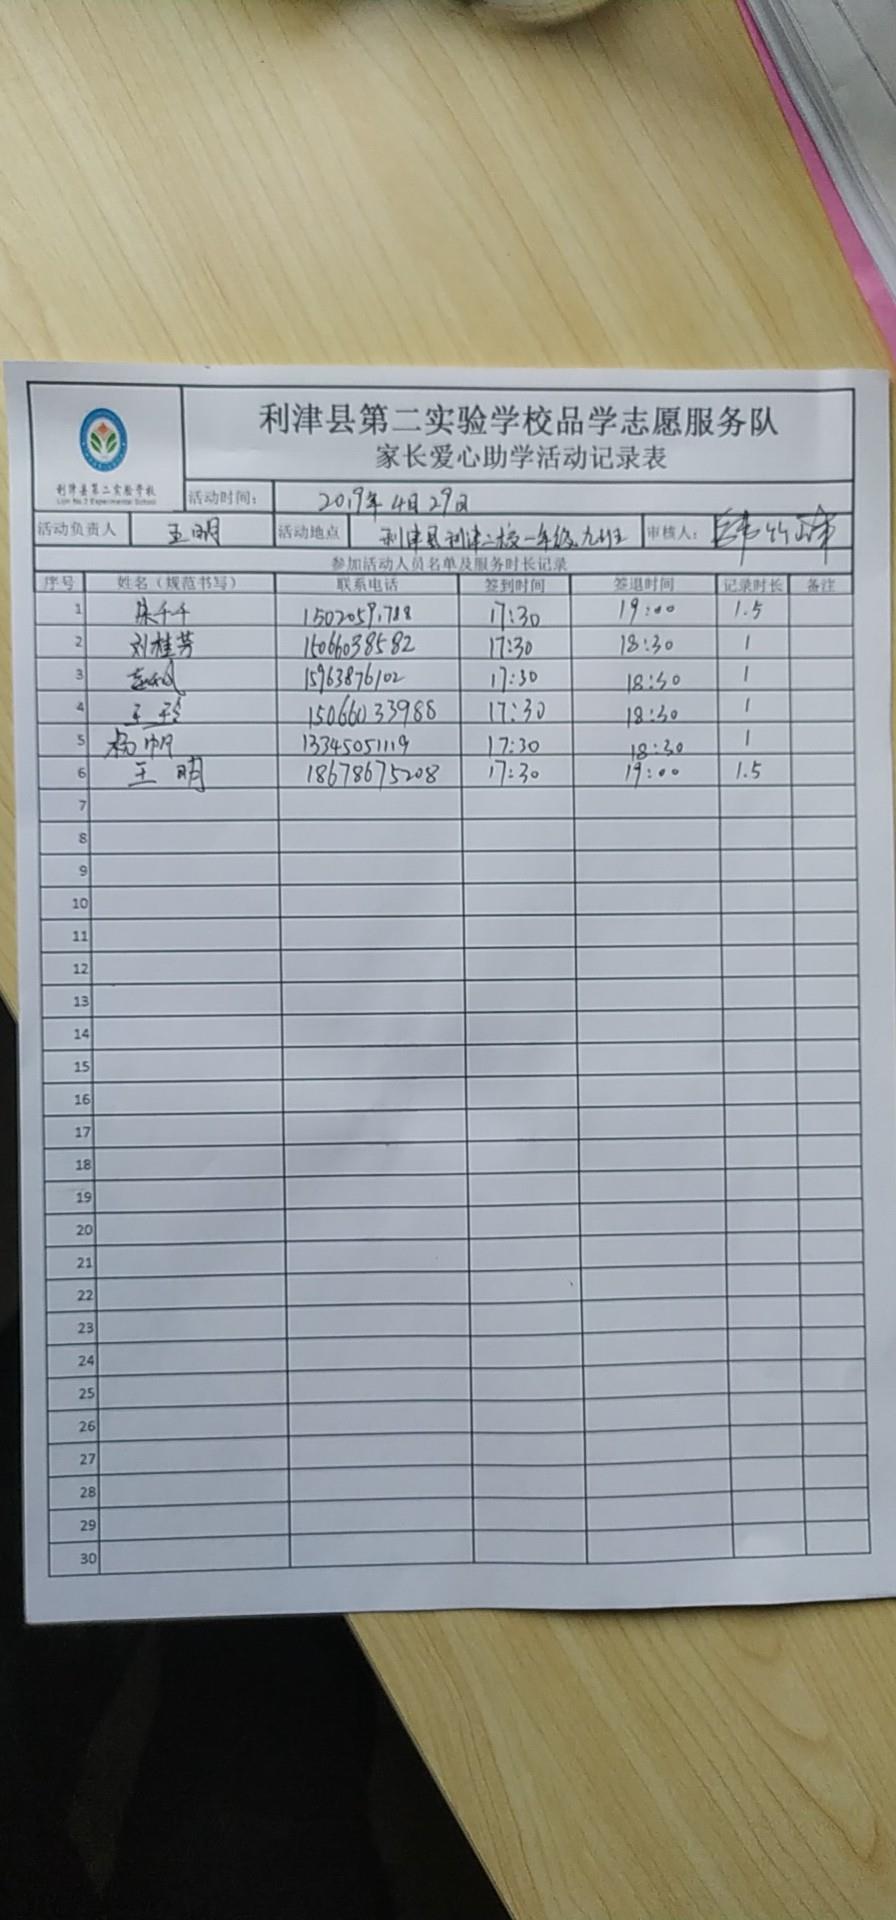 利津县第二实验学校品学志愿服务队
家长爱心助学活动记录表
利津县第二实验学校
Lijin No.2 Experimental School
活动时间: 2019年4月29日
活动负责人 王明 活动地点 利津县利津二校一年级九班 审核人:
参加活动人员名单及服务时长记录
序号 姓名（规范书写） 联系电话 签到时间 签退时间 记录时长 备注
1 千千 17:30 19:00 1.5
2 刘桂芳 15066038582 17:30 18:30 1
3 15963876102 17:30 18:30 1
4 王玲 15066033988 17:30 18:30 1
5 杨帆 13345051119 17:30 18:30 1
6 王明 18678675208 17:30 19:00 1.5
7
8
9
10
11
12
13
14
15
16
17
18
19
20
21
22
23
24
25
26
27
28
29
30